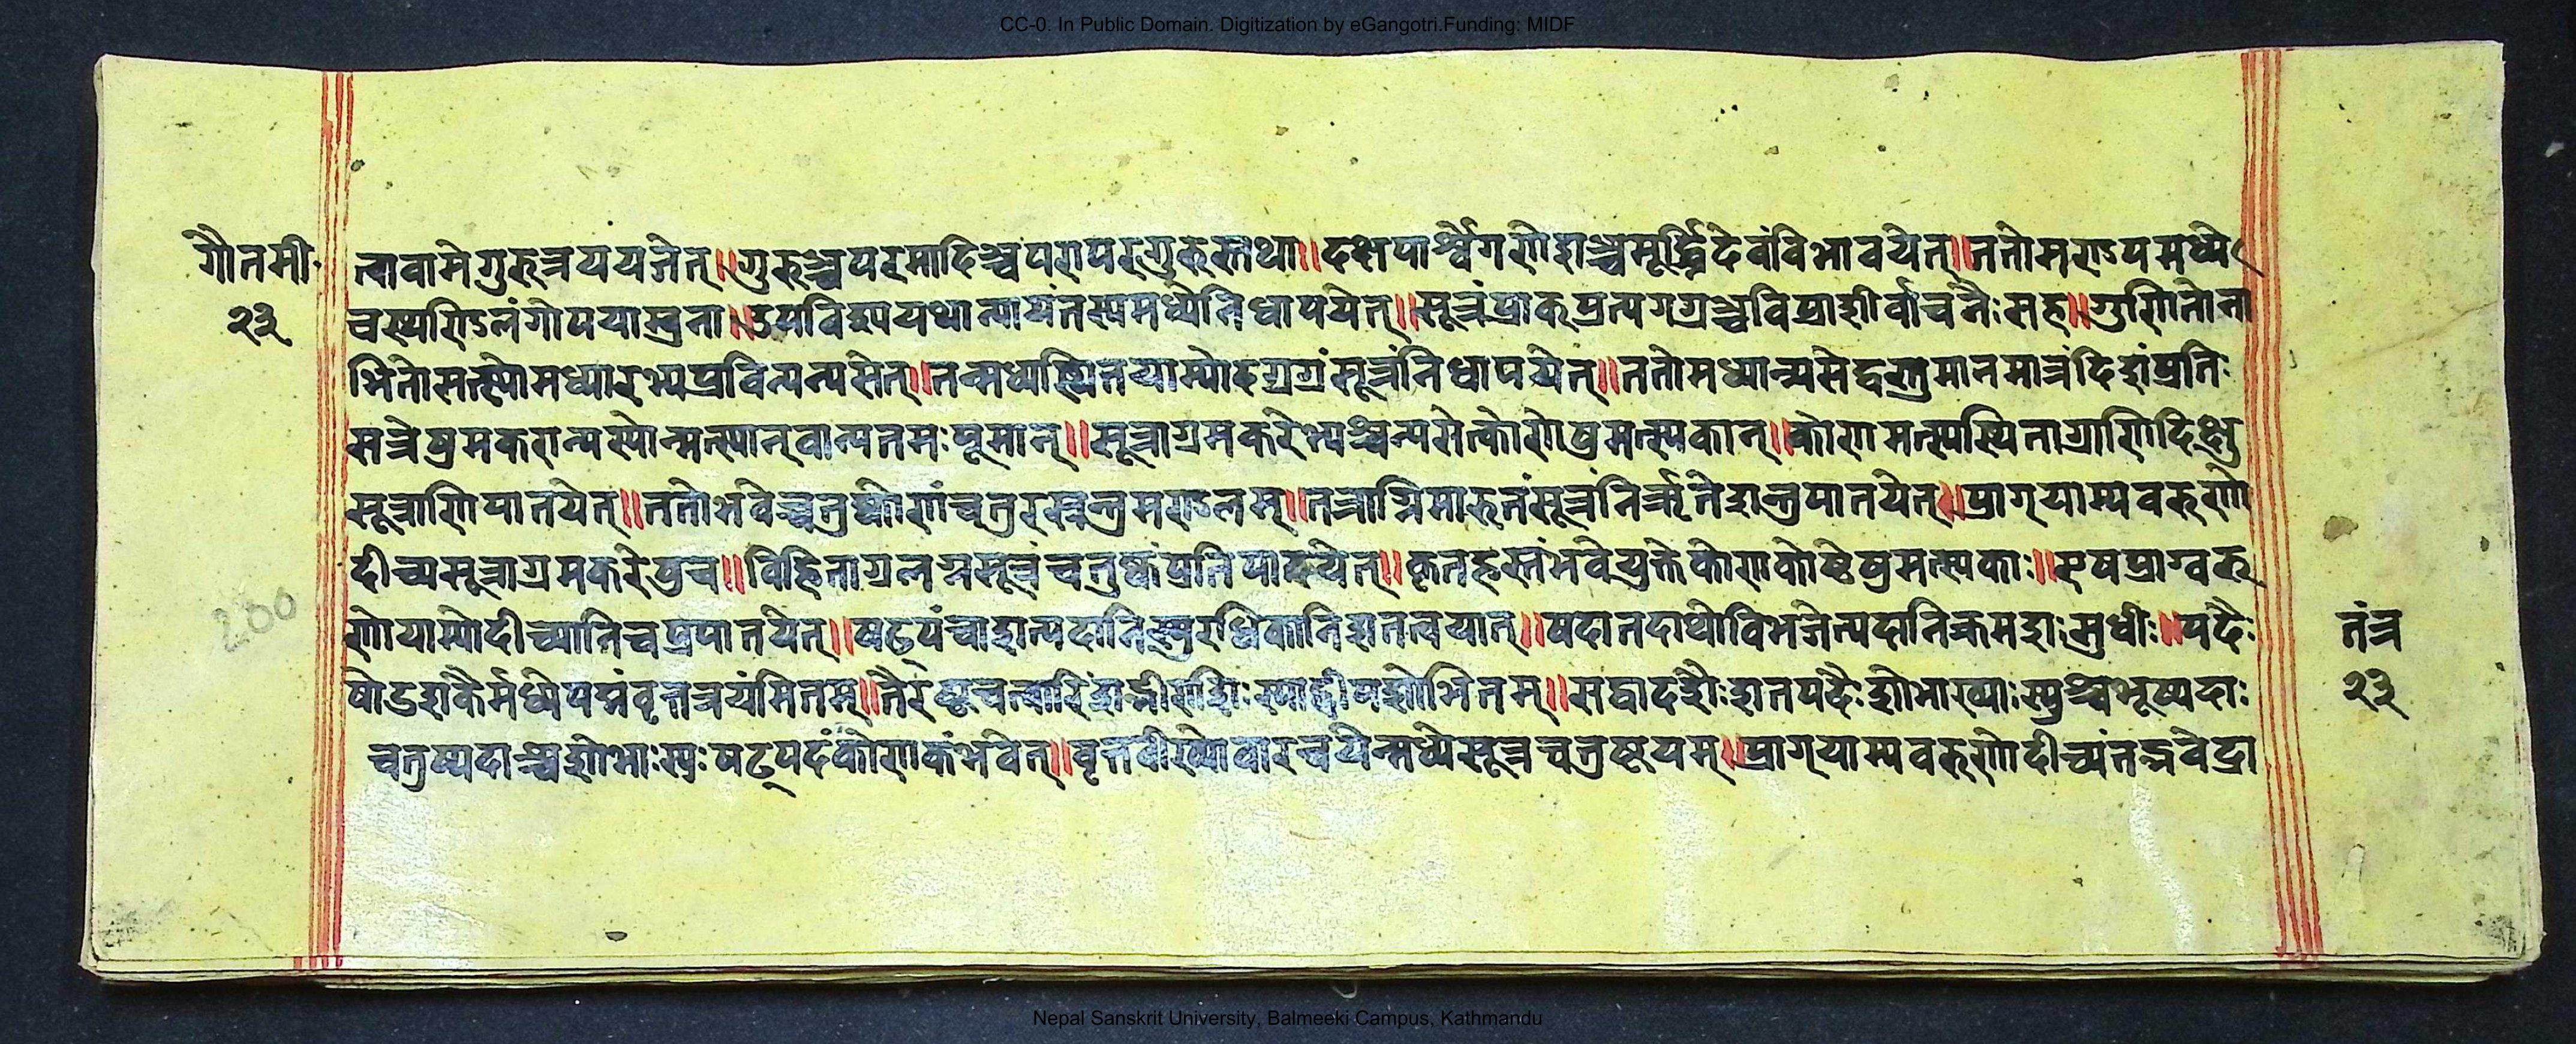 CC-0. In Public Domain. Digitization by eGangotri.Funding: MIDF
गौतमी
२३
त्वावामेगुरुत्रययजेत्॥गुरुश्चपरमादिश्चपरापरगुरुस्तथा॥दक्षपार्श्वेगणेशश्चमूर्द्ध्निदेवंविभावयेत्॥ततोमण्डपमध्ये
चस्थण्डिलंगोमयाम्बुना॥उपविश्ययथान्यायंतस्यमध्येनिधापयेत्॥सूत्रंप्राक्प्रत्यगग्रञ्चविप्राशीर्वाचनैःसह॥गुणितेना
भितोमत्स्योमध्यारभ्यप्रविन्यन्यसेत्॥तन्मध्यस्थितयाम्योदगग्रंसूत्रंनिधापयेत्॥ततोमध्यान्न्यसेद्धस्तमानमात्रंदिशंप्रति
सूत्रेषुमकरान्यस्येन्मत्स्यान्वान्यतमःपूमान्॥सूत्राग्रमकरेभ्यश्चन्यसेत्कोणेषुमत्स्यकान्॥कोणमत्स्यस्थिताग्राणिदिक्षु
सूत्राणिपातयेत्॥ततोभवेच्चतुष्कोणंचतुरस्रन्तुमण्डलम्॥तत्राग्निमारुतंसूत्रंनिर्ऋतेशन्तुपातयेत्॥प्राग्याम्यवरुणो
दीच्यसूत्राग्रमकरेषुच॥विहिताग्रलग्नसूत्रंचतुष्कंप्रतिपादयेत्॥कृतहस्तंभवेयुस्तेकोणकोष्टेषुमत्स्यकाः॥एषप्राग्वरु
णेयाम्योदीच्यानिचप्रपातयेत्॥षट्पंचाशत्पदानिस्युरधिकानिशतत्रयात्॥पदानदाथोविभजेत्पदानिक्रमशःसुधीः॥पदैः
षोडशकैर्मध्येपद्मंवृत्तत्रयंमितम्॥तैरष्टचत्वारिंशद्भीराशिःस्याद्वीथिशोभितम्॥सद्वादशैःशतपदैःशोभाख्याःस्युश्चभूष्पदाः
चतुष्पदाश्चशोभाःस्युःषट्पदंकोणकंभवेत्॥वृत्तवीथ्योवारचयेन्मध्येसूत्रचतुष्टयम्॥प्राग्याम्यवरुणोदीच्यंतद्भवेद्रा
260
तंत्र
२३
Nepal Sanskrit University, Balmeeki Campus, Kathmandu